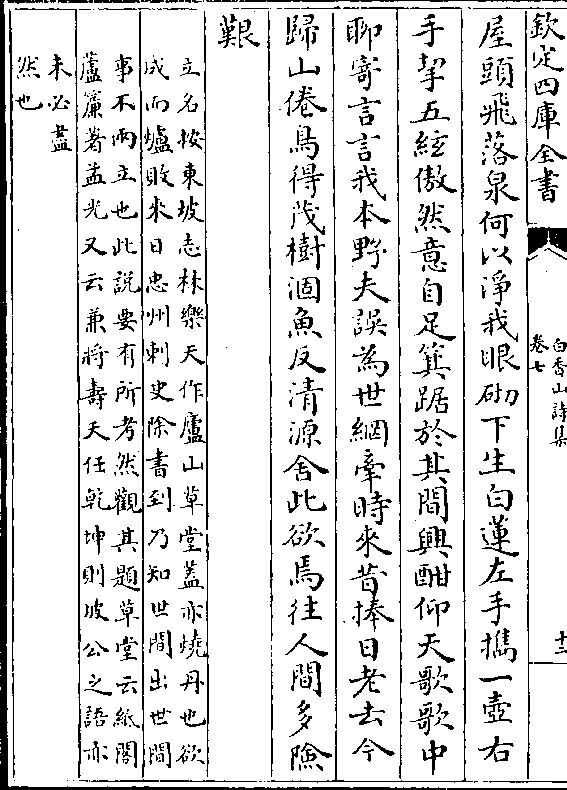 欽定四庫全書
白香山詩集
卷七
十三
屋頭飛落泉何以淨我眼砌下生白蓮左手㩗一壺右
手挈五絃傲然意自足箕踞於其間興酣仰天歌歌中
聊寄言言我本野夫誤為世網牽時來昔捧日老去今
歸山倦鳥得茂樹涸魚反清源舍此欲焉往人間多險
艱
立名按東坡志林樂天作廬山草堂蓋亦燒丹也欲
成而爐敗來日忠州刺史除書到乃知世間出世間
事不兩立也此說要有所考然觀其題草堂云紙閣
蘆簾著孟光又云兼將壽夭任乾坤則坡公之語亦
未必盡
然也